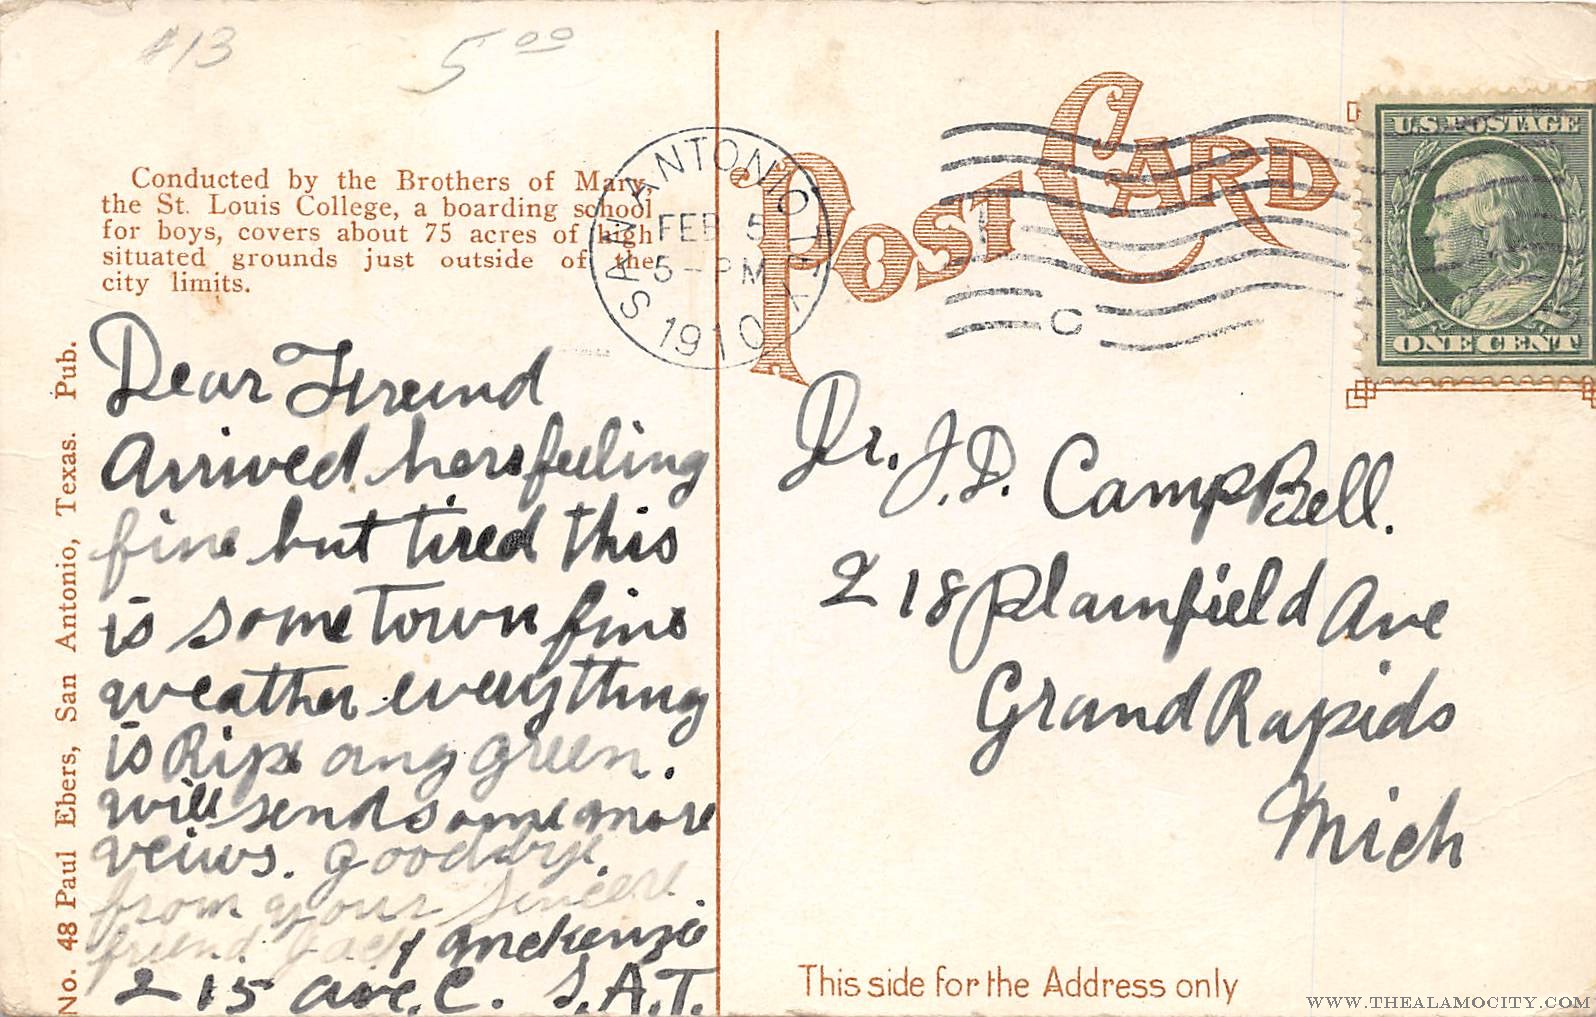 #13
5 00
Conducted by the Brothers of Mary,
the St. Louis College, a boarding school
for boys, covers about 75 acres of high
situated grounds just outside of the
city limits.
No. 48 Paul Ebers, San Antonio, Texas. Pub.
Dear Freind
Arrived here feeling
fine but tired this
is some town fine
weather everything
is Ripe and green.
will send some more
veiws. Goodbye.
from your Sincere
friend
McKenzie
215 ave. C. S.A.T.
SAN ANTONIO TEX
FEB 5
5-PM
1910
POST CARD
C
U.S. POSTAGE
ONE CENT
Dr. J.D. CampBell.
218 Plainfield Ave
Grand Rapids
Mich
This side for the Address only
WWW.THEALAMOCITY.COM